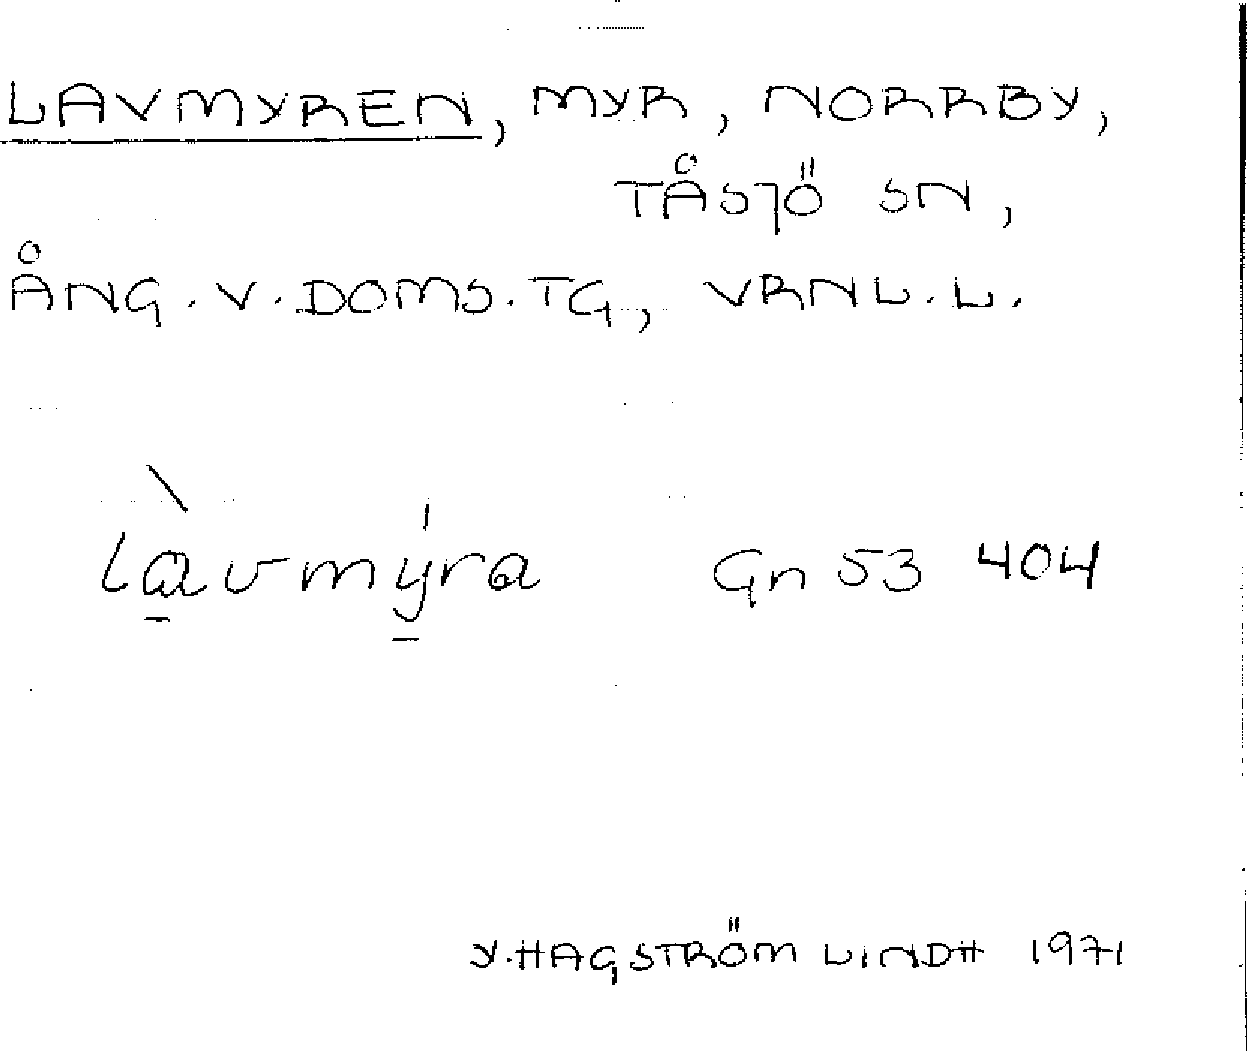 LAVMYREN, MYR, NORRBY,
TÅSJÖ SN,
ÅNG. V. DOMS. TG, VRNL. L.
là̱vmý̱ra Gn 53 404
Y. HAGSTRÖM LINDH 1971